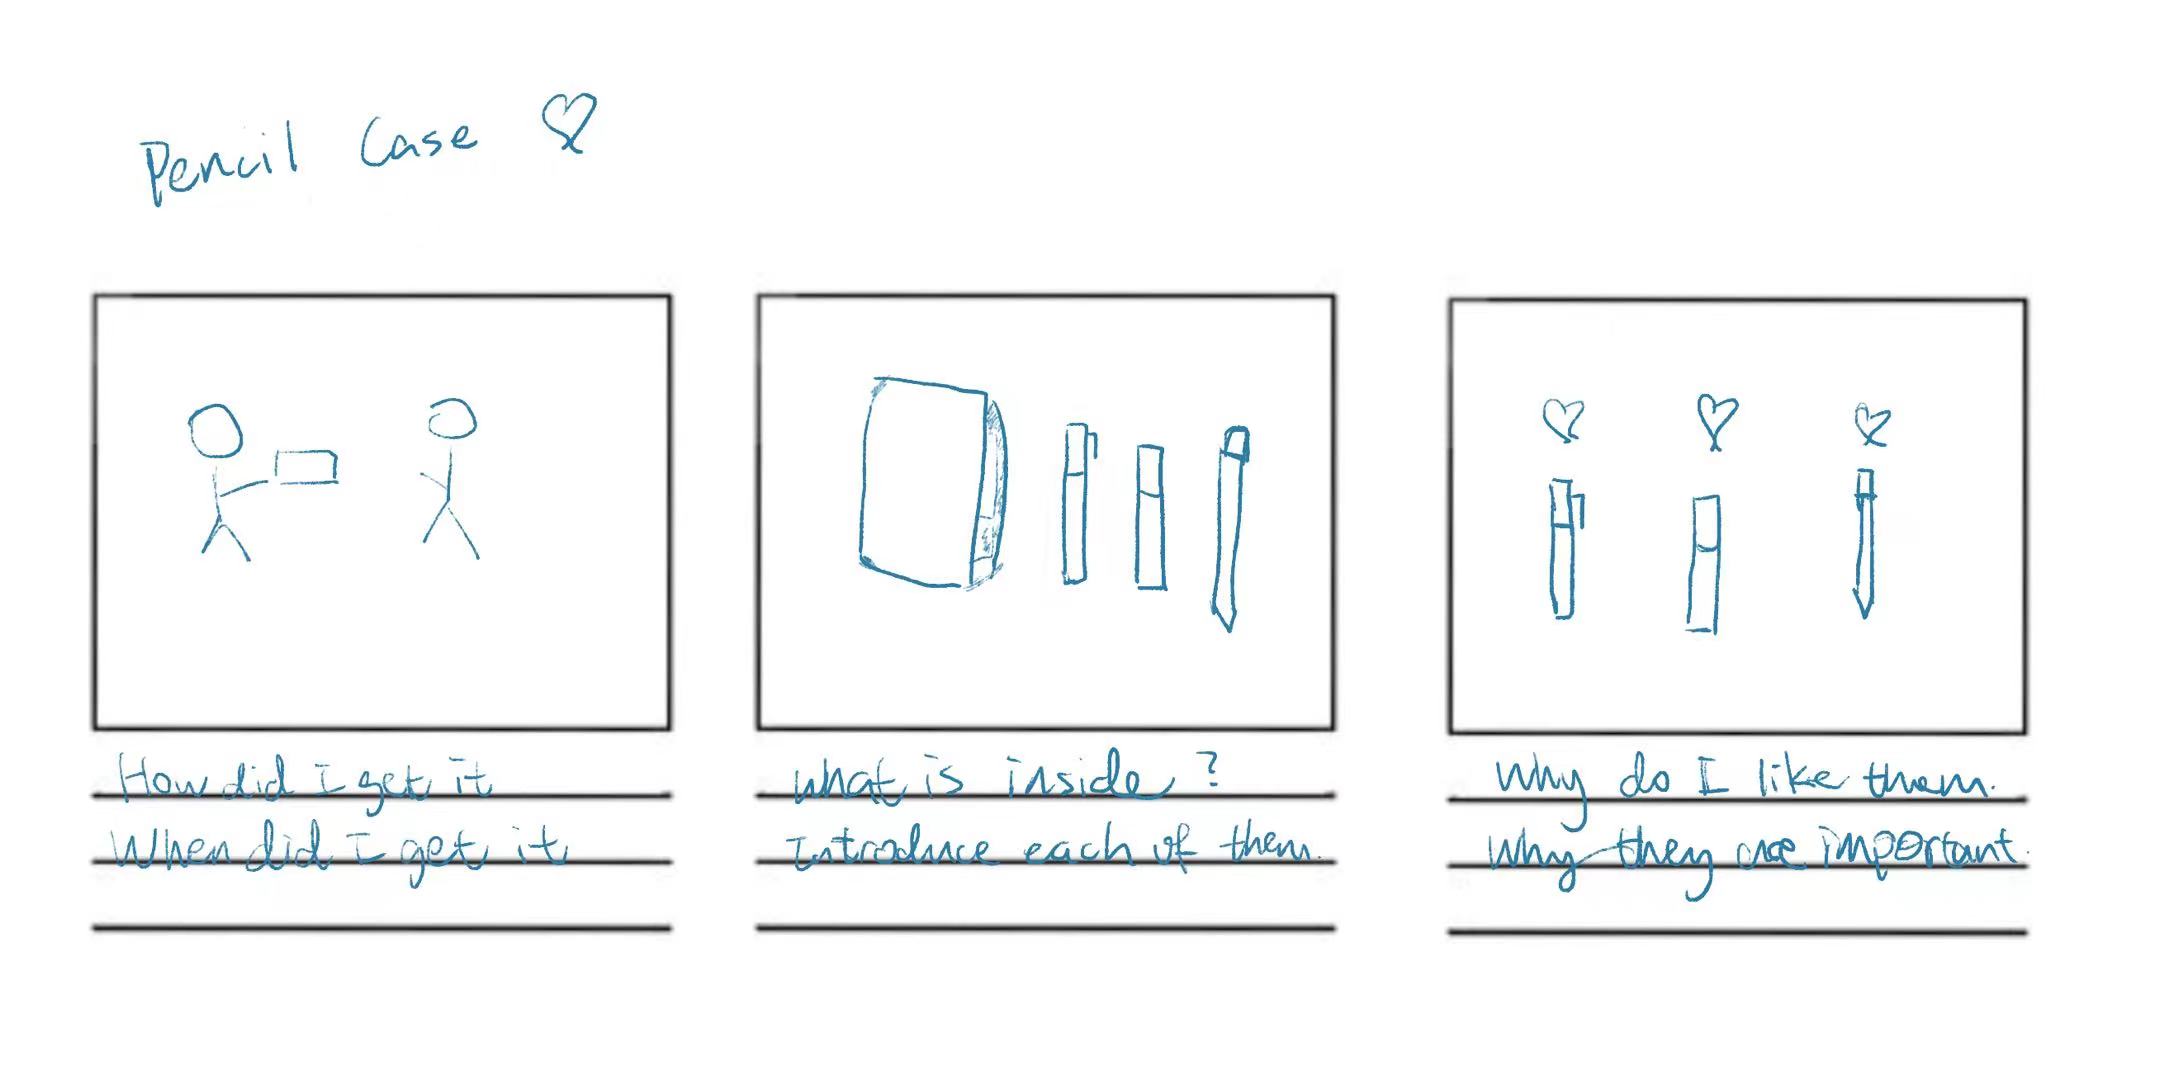 Pencil Case
How did I get it
When did I get it
What is inside?
Introduce each of them.
Why do I like them.
Why they are important.